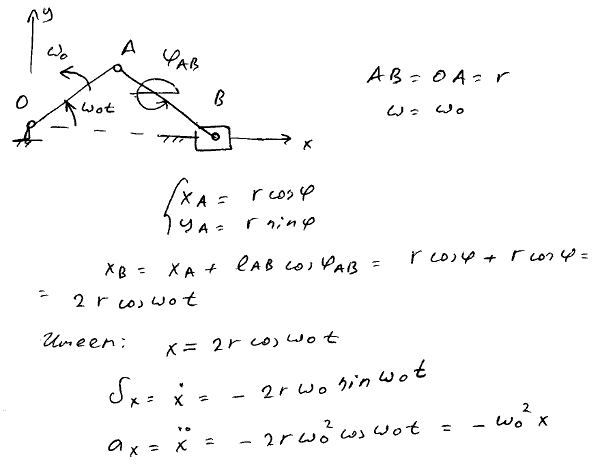 y
ω₀ A φ_AB
O ω₀t B
x
AB = OA = r
ω = ω₀
x_A = r cos φ
y_A = r sin φ
x_B = x_A + l_AB cos φ_AB = r cos φ + r cos φ =
= 2 r cos ω₀t
Имеем: x = 2r cos ω₀t
υ_x = ẋ = - 2r ω₀ sin ω₀t
a_x = ẍ = - 2r ω₀² cos ω₀t = - ω₀² x